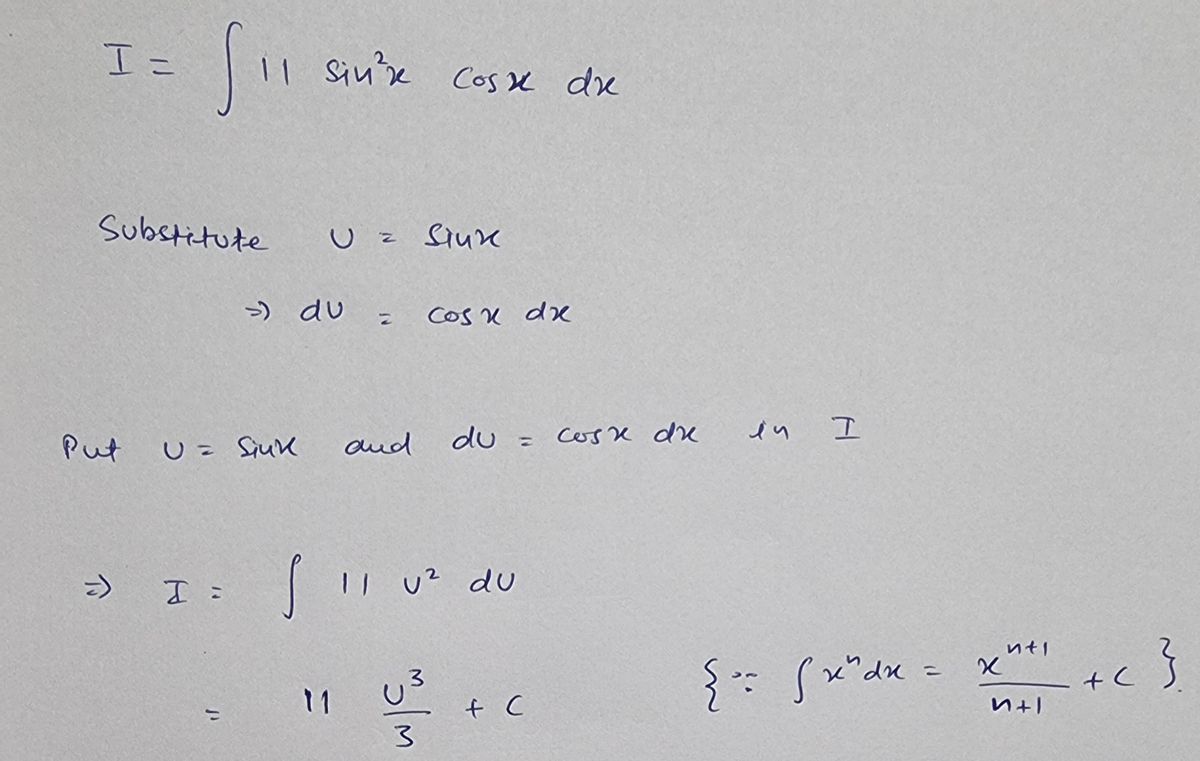 I = ∫ 11 sin²x cosx dx
Substitute U = sinx
⇒ dU = cosx dx
Put U = sinx and dU = cosx dx in I
⇒ I = ∫ 11 U² dU
= 11 U³/3 + C {∵ ∫ xⁿ dx = xⁿ⁺¹/n+1 + C}.